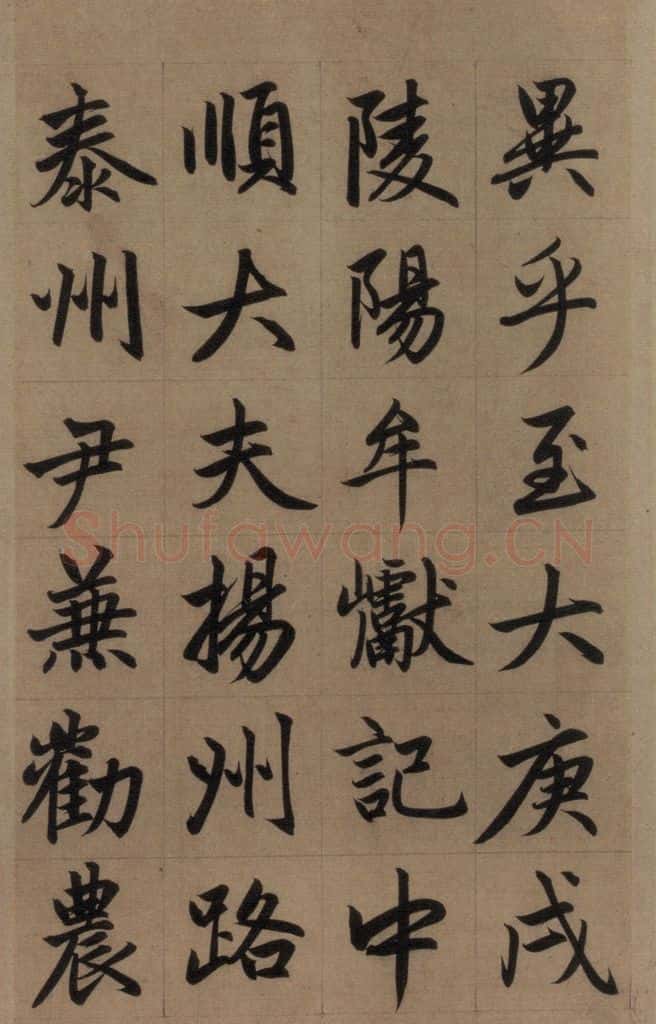 異乎至大庚戌
陵陽牟巘記中
順大夫揚州路
泰州尹蒹勸農
Shufawang.CN